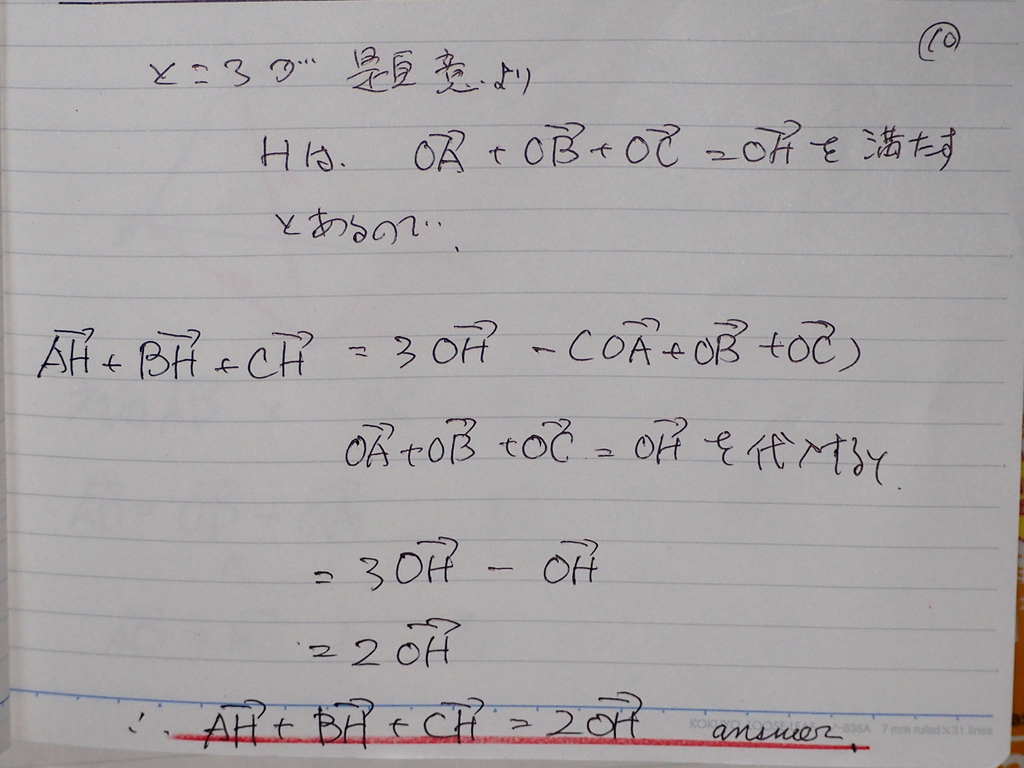 ⑩
ところで… 題意より
Hは、 OA→ + OB→ + OC→ = OH→ を満たす
とあるので…、
AH→ + BH→ + CH→ = 3OH→ - (OA→ + OB→ + OC→)
OA→ + OB→ + OC→ = OH→ を代入すると、
= 3OH→ - OH→
= 2OH→
∴ AH→ + BH→ + CH→ = 2OH→ answer.
KOKUYO LOOSE-LEAF 836A 7 mm ruled×31 lines